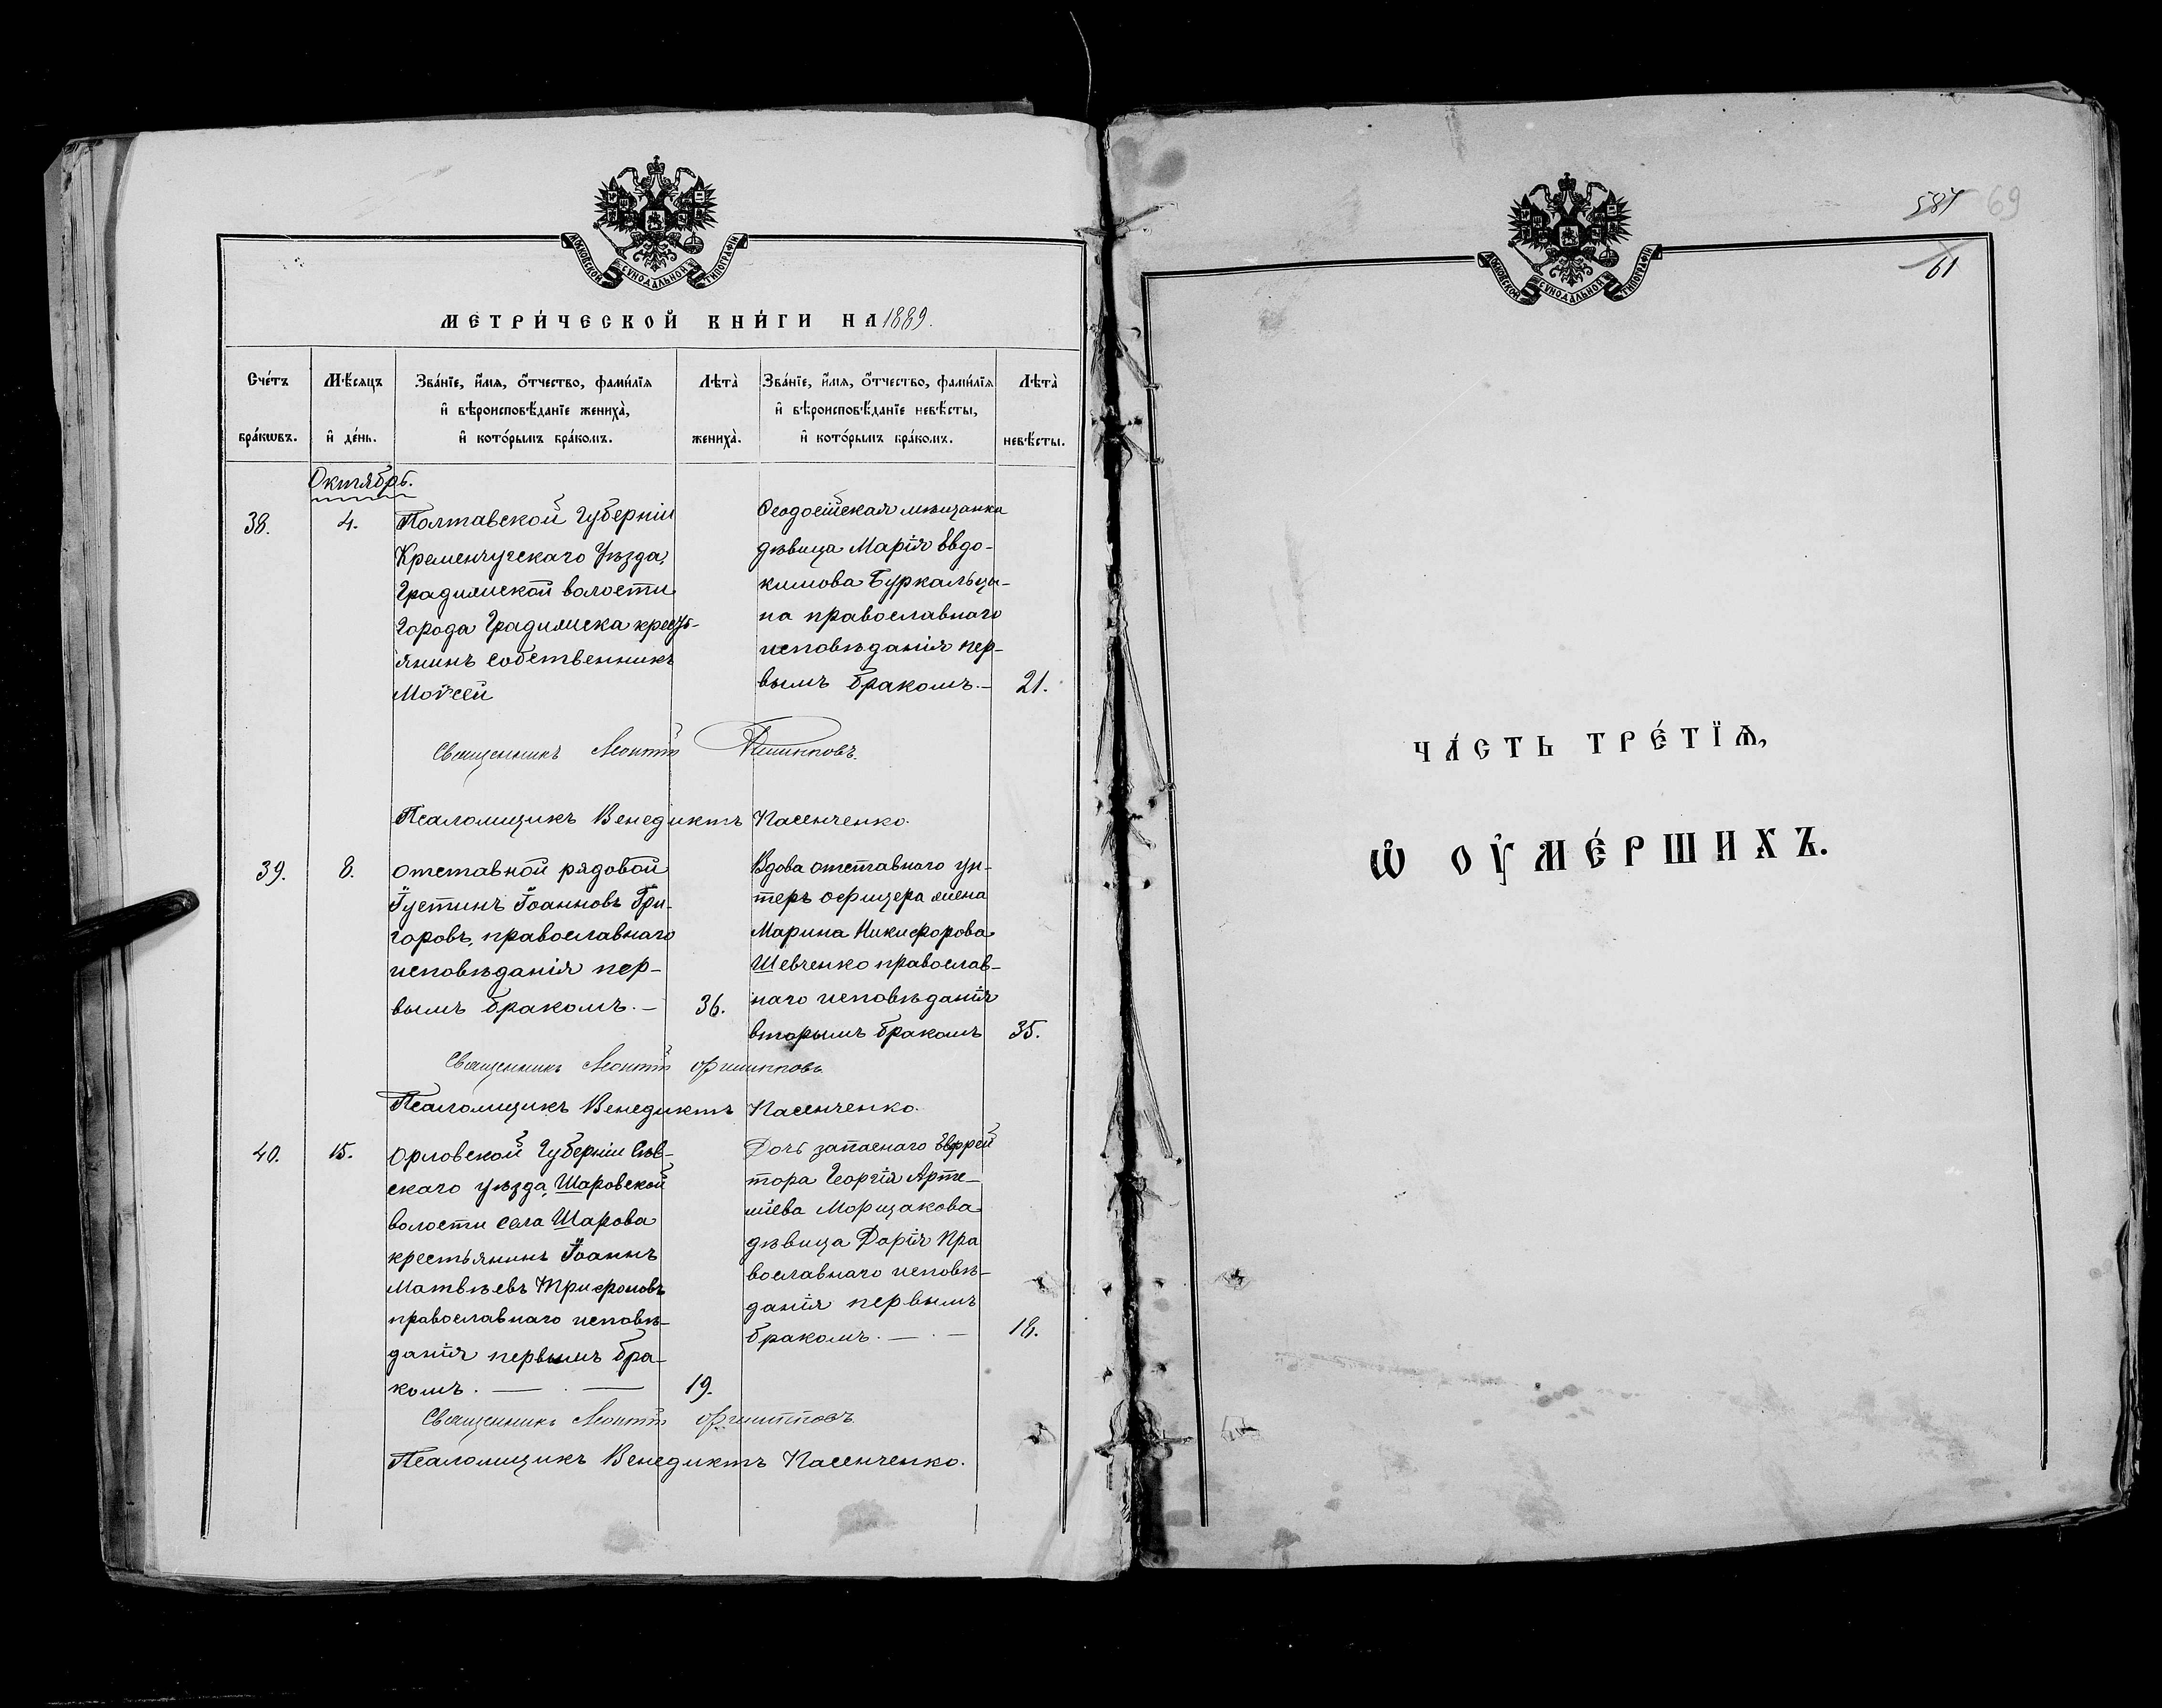 МОСКОВСКОЙ СУНОДАЛЬНОЙ ТИПОГРАФІИ
МЕТРИ́ЧЕСКОЙ КНИ́ГИ НА 1889.
Сче́тъ бра́кѡвъ.
Мѣ́сяцъ и҆ де́нь.
Зва́нїе, и҆́мѧ, ѻ҆́тчество, фами́лїѧ
и҆ вѣроисповѣ́данїе жениха̀,
и҆ кото́рымъ бра́комъ.
Лѣта̀ жениха̀.
Зва́нїе, и҆́мѧ, ѻ҆́тчество, фами́лїѧ
и҆ вѣроисповѣ́данїе невѣ́сты,
и҆ кото́рымъ бра́комъ.
Лѣта̀ невѣ́сты.
Октябрь.
38.
4.
Полтавской Губерніи
Кременчугскаго Уѣзда,
Градижской волости
Города Градижска кресть-
янинъ собственникъ
Моѵсей
Ѳеодосійская мѣщанка
дѣвица Марія Евдо-
кимова Буркальце-
ва православнаго
исповѣданія пер-
вымъ бракомъ.—
21.
Священникъ Леонтій Филипповъ.
Псаломщикъ Венедиктъ Пасенченко.
39.
8.
отставной рядовой
Іустинъ Іоанновъ Гри-
горовъ, православнаго
исповѣданія пер-
вымъ бракомъ.—
36.
Вдова отставнаго ун-
теръ офицера жена
Марина Никифорова
Шевченко православ-
наго исповѣданія
вторымъ бракомъ
35.
Священникъ Леонтій Филипповъ.
Псаломщикъ Венедиктъ Пасенченко.
40.
15.
Орловской Губерніи Сѣв-
скаго уѣзда, Шаровской
волости села Шарова
крестьянинъ Іоаннъ
Матвѣевъ Трифоновъ
православнаго исповѣ-
данія первымъ бра-
комъ. — . —
19.
Дочь запаснаго Ефрей
тора Георгія Арте-
міева Морщакова
дѣвица Дарія Пра
вославнаго исповѣ-
данія первымъ
бракомъ. — . —
18.
Священникъ Леонтій Филипповъ.
Псаломщикъ Венедиктъ Пасенченко.
69
61
МОСКОВСКОЙ СУНОДАЛЬНОЙ ТИПОГРАФІИ
ЧА́СТЬ ТРЕ́ТЇѦ,
Ѽ ОУ҆МЕ́РШИХЪ.